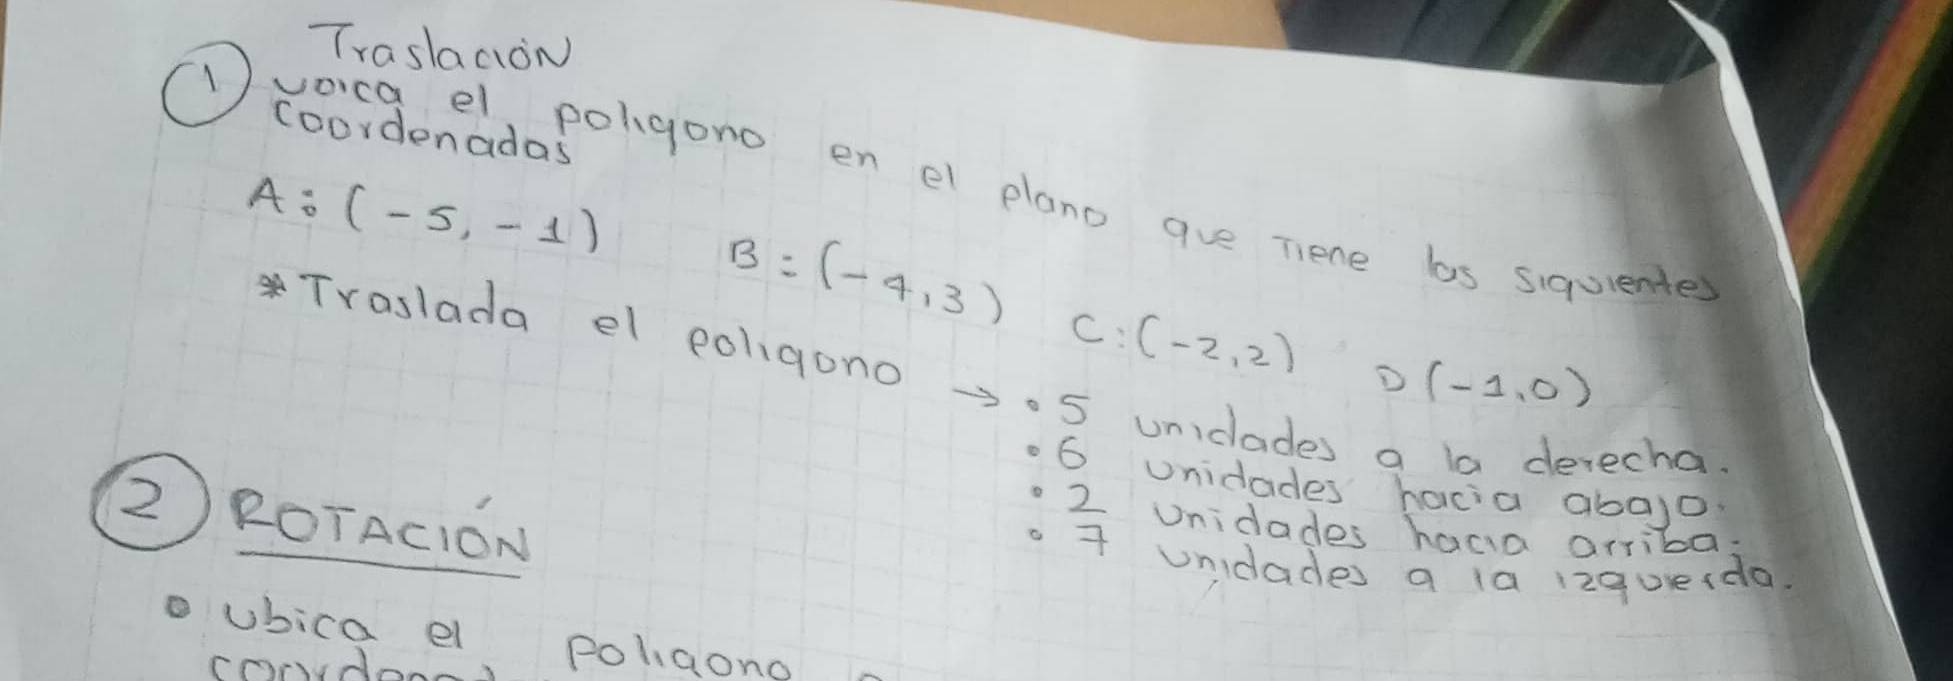 Traslación
① Ubica el poligono en el plano que Tiene las siguientes
coordenadas
A: (-5, -1) B: (-4,3) C: (-2,2) D (-1,0)
* Traslada el poligono → • 5 unidades a la derecha.
• 6 unidades hacia abajo.
• 2 unidades hacia arriba.
• 7 unidades a la izquierda.
② ROTACIÓN
• Ubica el poligono